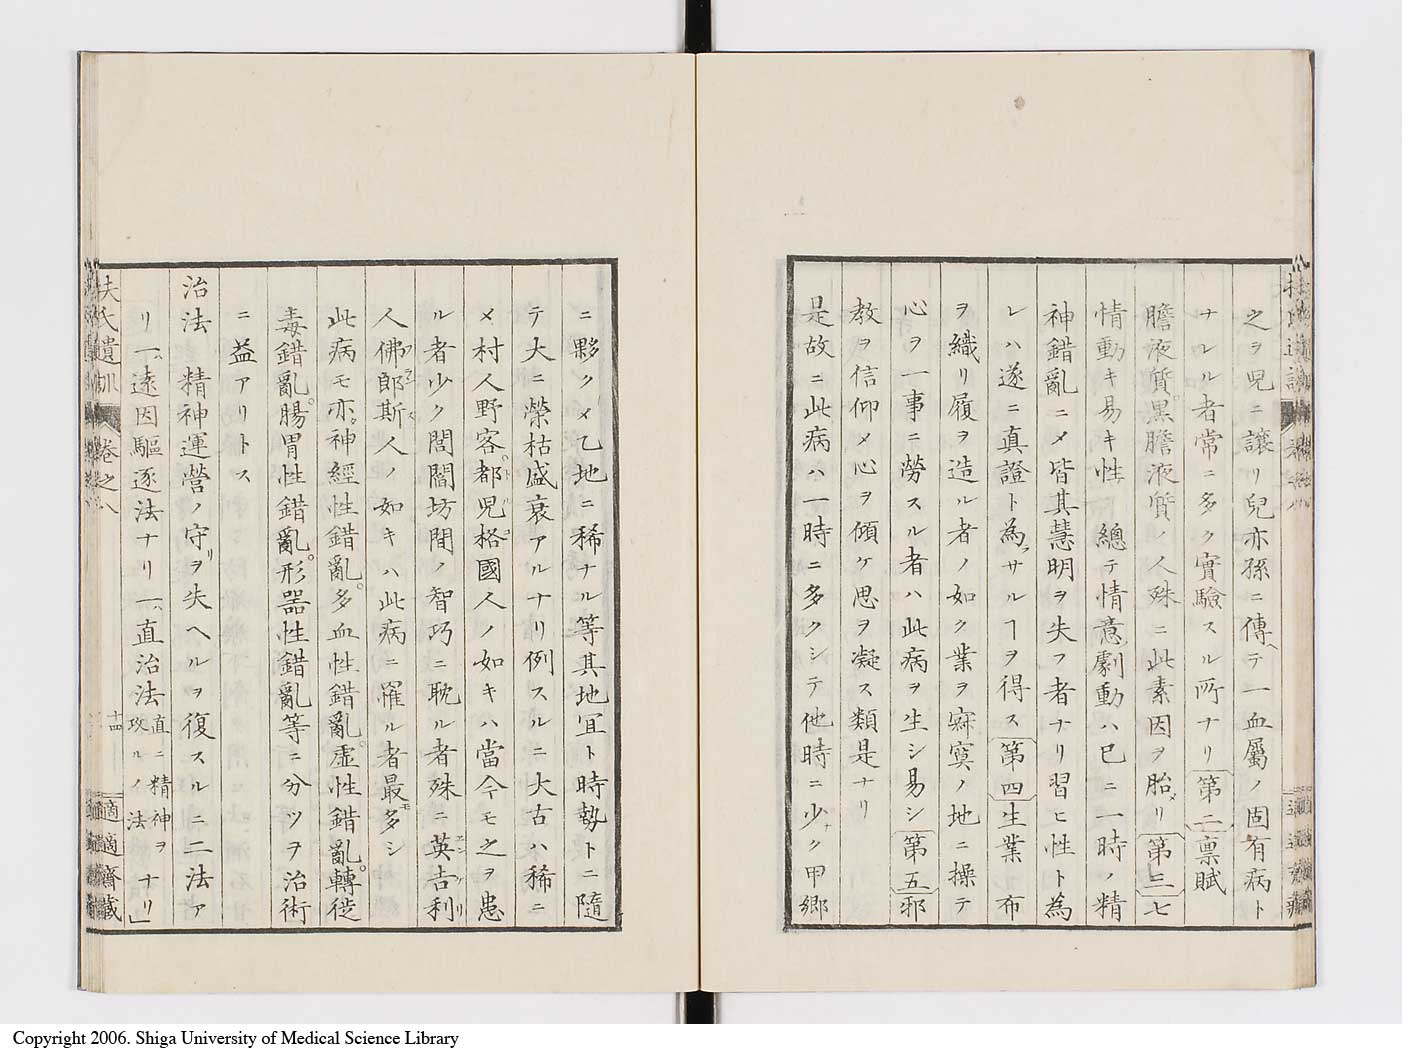 之ヲ兒ニ譲リ兒亦孫ニ傳ヘテ一血屬ノ固有病ト
ナレル者常ニ多ク實驗スル所ナリ第二禀賦
膽液質黒膽液質ノ人殊ニ此素因ヲ胎メリ第三七
情動キ易キ性總テ情意劇動ハ已ニ一時ノ精
神錯亂ニ〆皆其慧明ヲ失フ者ナリ習ヒ性ト為
レハ遂ニ真證ト為ラサルヿヲ得ス第四生業布
ヲ織リ履ヲ造ル者ノ如ク業ヲ寂寞ノ地ニ操テ
心ヲ一事ニ勞スル者ハ此病ヲ生シ易シ第五邪
教ヲ信仰〆心ヲ傾ケ思ヲ凝ス類是ナリ
是故ニ此病ハ一時ニ多クシテ他時ニ少ナク甲郷
ニ夥ク〆乙地ニ稀ナル等其地宜ト時勢トニ隨
テ大ニ榮枯盛衰アルナリ例スルニ大古ハ稀ニ
〆村人野客都兒格國人ノ如キハ當今モ之ヲ患
ル者少ク閭閻坊間ノ智巧ニ耽ル者殊ニ英吉利
人佛郎斯人ノ如キハ此病ニ罹ル者最モ多シ
此病モ亦神經性錯亂。多血性錯亂。虚性錯亂。轉徙
毒錯亂。腸胃性錯亂。形器性錯亂等ニ分ツヲ治術
ニ益アリトス
治法 精神運營ノ守リヲ失ヘルヲ復スルニ二法ア
リ一遠因驅逐法ナリ一直治法直ニ精神ヲ攻ルノ法ナリ
扶氏遺訓 卷之八 十四 適適齋藏
Copyright 2006. Shiga University of Medical Science Library